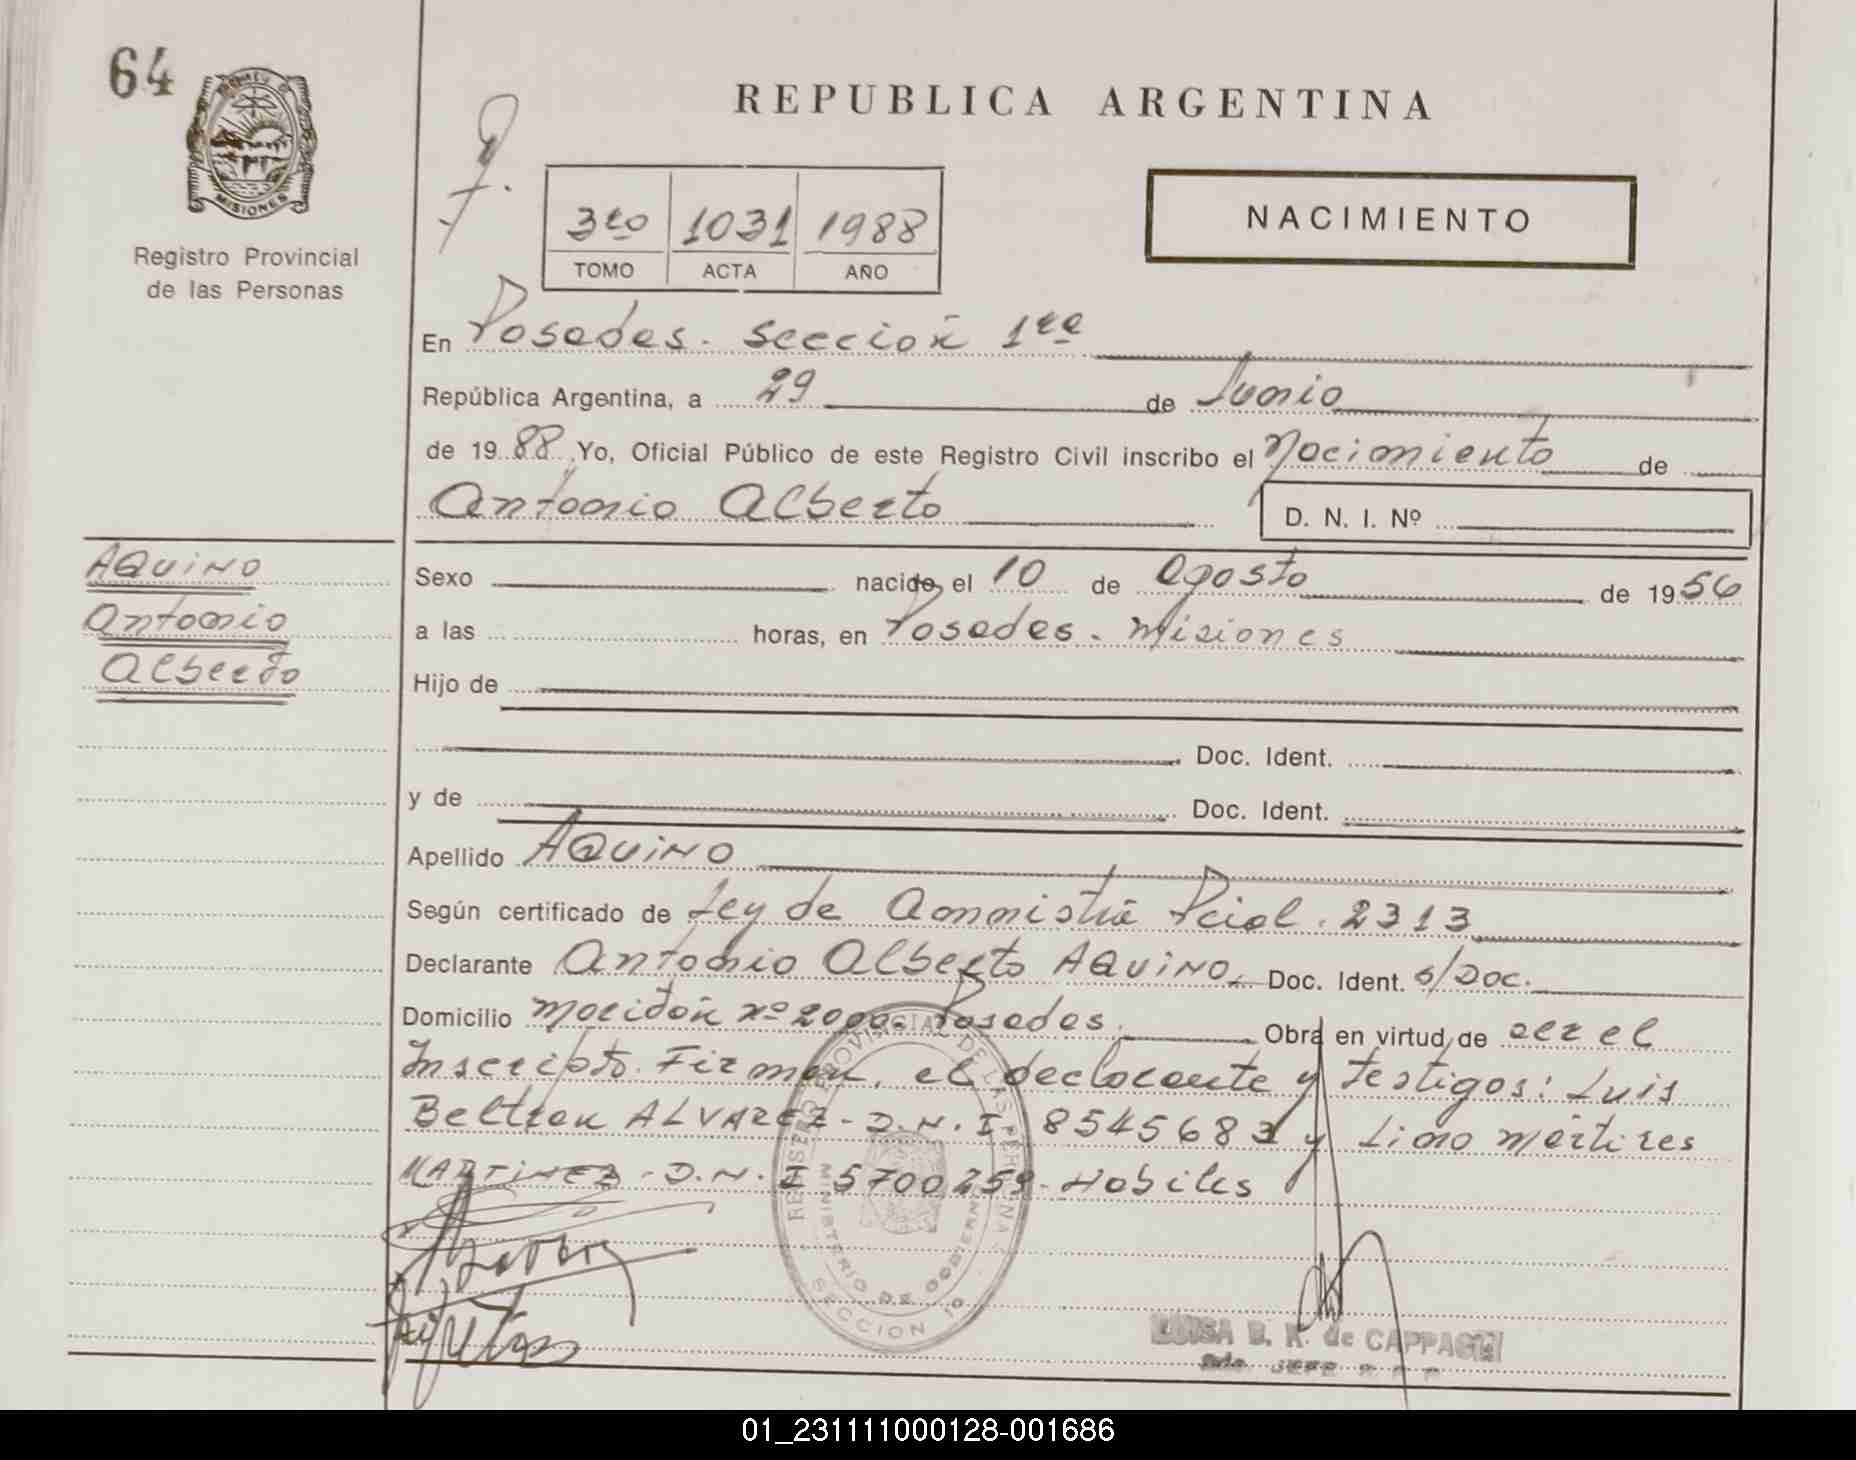 64
MISIONES
Registro Provincial
de las Personas
REPUBLICA ARGENTINA
NACIMIENTO
3ro 1031 1988
TOMO ACTA AÑO
En Posadas. Sección 1ra
República Argentina, a 29 de Junio
de 1988 Yo, Oficial Público de este Registro Civil inscribo el Nacimiento de
Antonio Alberto D. N. I. Nº
AQUINO
Antonio
Alberto
Sexo nacido el 10 de Agosto de 1956
a las horas, en Posadas. Misiones
Hijo de
Doc. Ident.
y de Doc. Ident.
Apellido AQUINO
Según certificado de Ley de Amnistia Pcial. 2313
Declarante Antonio Alberto AQUINO. Doc. Ident. s/Doc.
Domicilio Posadas. Obra en virtud de ser el
Inscripto. Firman, el declarante y testigos: Luis
Beltran ALVAREZ - D.N.I. 8545683 y Lino Mártires
MARTINEZ - D.N.I 5700259. Hábiles
REGISTRO PROVINCIAL DE LAS PERSONAS
MINISTERIO DE GOBIERNO
SECCION 1º
LUISA B. R. de CAPPAGLI
JEFE
01_231111000128-001686